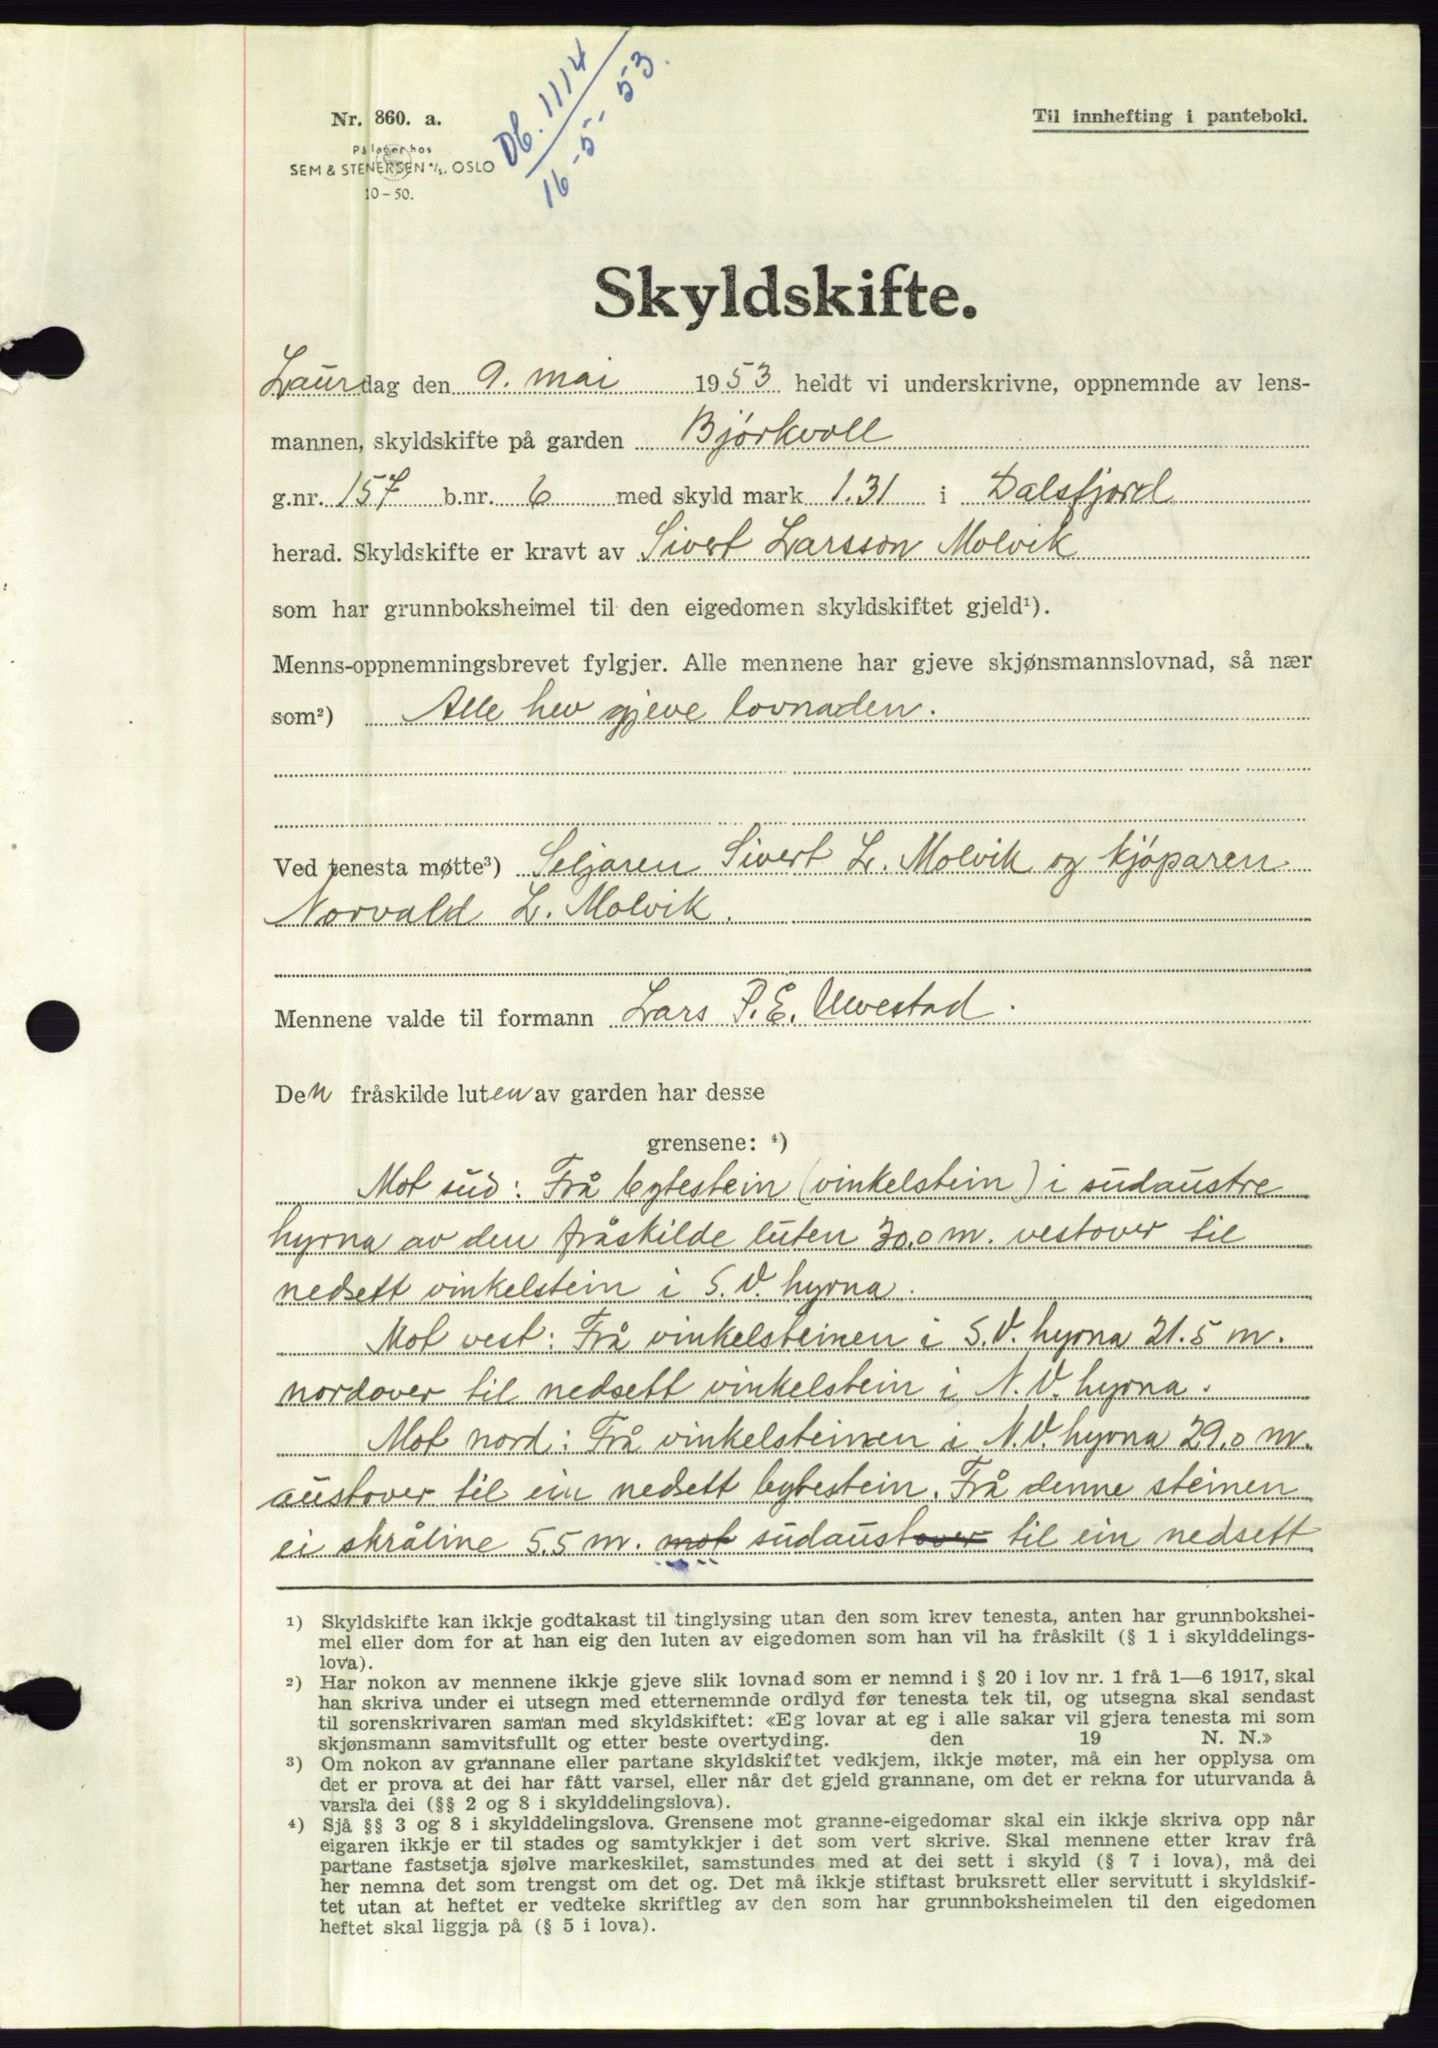 Nr. 860. a.
På lager hos
SEM & STENERSEN A/S, OSLO
10-50.
Db. 1114
16-5-53.
Til innhefting i panteboki.
Skyldskifte.
Laurdag den 9. mai 1953 heldt vi underskrivne, oppnemnde av lens-
mannen, skyldskifte på garden Bjørkvoll
g.nr. 157 b.nr. 6 med skyld mark 1.31 i Dalsfjord
herad. Skyldskifte er kravt av Sivert Larsson Molvik
som har grunnboksheimel til den eigedomen skyldskiftet gjeld¹).
Menns-oppnemningsbrevet fylgjer. Alle mennene har gjeve skjønsmannslovnad, så nær
som²) Alle hev gjeve lovnaden.
Ved tenesta møtte³) Seljaren Sivert L. Molvik og kjøparen
Norvald L. Molvik.
Mennene valde til formann Lars P. E. Ulvestad.
Den fråskilde luten av garden har desse
grensene: ⁴)
Mot sud: Frå bytestein (vinkelstein) i sudaustre
hyrna av den fråskilde luten 30,0 m. vestover til
nedsett vinkelstein i S.V. hyrna.
Mot vest: Frå vinkelsteinen i S.V. hyrna 21.5 m.
nordover til nedsett vinkelstein i N.V. hyrna.
Mot nord: Frå vinkelsteinen i N.V. hyrna 29,0 m.
austover til ein nedsett bytestein. Frå denne steinen
ei skråline 5.5 m. mot sudaustover til ein nedsett
¹) Skyldskifte kan ikkje godtakast til tinglysing utan den som krev tenesta, anten har grunnbokshei-
mel eller dom for at han eig den luten av eigedomen som han vil ha fråskilt (§ 1 i skylddelings-
lova).
²) Har nokon av mennene ikkje gjeve slik lovnad som er nemnd i § 20 i lov nr. 1 frå 1—6 1917, skal
han skriva under ei utsegn med etternemnde ordlyd før tenesta tek til, og utsegna skal sendast
til sorenskrivaren saman med skyldskiftet: «Eg lovar at eg i alle sakar vil gjera tenesta mi som
skjønsmann samvitsfullt og etter beste overtyding. den 19 N. N.»
³) Om nokon av grannane eller partane skyldskiftet vedkjem, ikkje møter, må ein her opplysa om
det er prova at dei har fått varsel, eller når det gjeld grannane, om det er rekna for uturvanda å
varsla dei (§§ 2 og 8 i skylddelingslova).
⁴) Sjå §§ 3 og 8 i skylddelingslova. Grensene mot granne-eigedomar skal ein ikkje skriva opp når
eigaren ikkje er til stades og samtykkjer i det som vert skrive. Skal mennene etter krav frå
partane fastsetja sjølve markeskilet, samstundes med at dei sett i skyld (§ 7 i lova), må dei
her nemna det som trengst om det og. Det må ikkje stiftast bruksrett eller servitutt i skyldskif-
tet utan at heftet er vedteke skriftleg av den som har grunnboksheimelen til den eigedomen
heftet skal liggja på (§ 5 i lova).